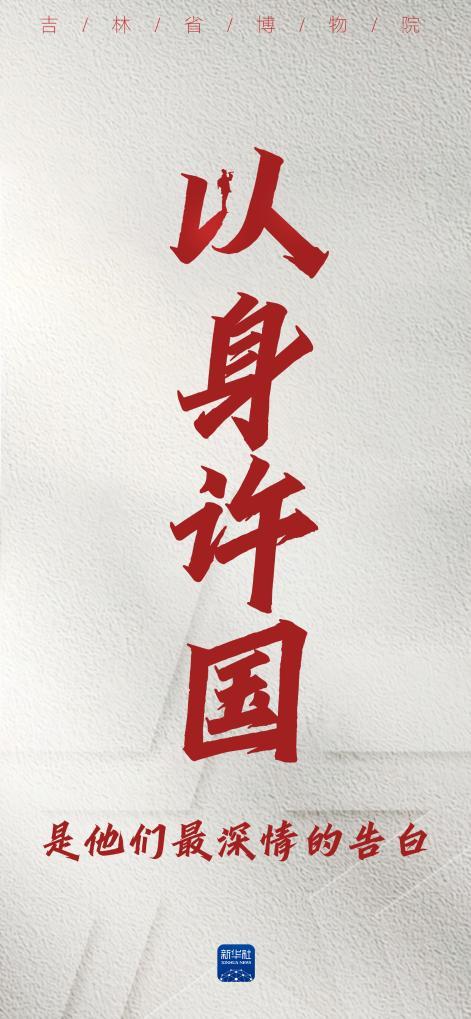 吉/林/省/博/物/院
以
身
许
国
是他们最深情的告白
新华社
XINHUA NEWS